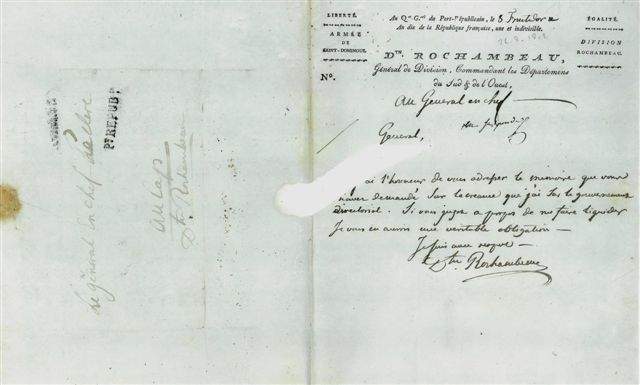 LIBERTÉ.
ARMÉE
DE
SAINT-DOMINGUE.
Au Qer. Gral. du Port-Républicain, le 8 Fructidor
An dix de la République française, une et indivisible.
ÉGALITÉ.
DIVISION
ROCHAMBEAU.
Dtn. ROCHAMBEAU,
Général de Division, Commandant les Départemens
du Sud & de l'Ouest,
N°.
Au General en chef
General,
ai l'honneur de vous adresser le memoire que vous
demandé sur la creance que j'ai sur le gouvernement
directorial. Si vous jugez a propos de me faire liquider
Je vous en aurais une veritable obligation
Je suis avec respect
Dtn Rochambeau
P^t REPUB^n
Le général en chef Leclerc
au Cap
Dtn Rochambeau